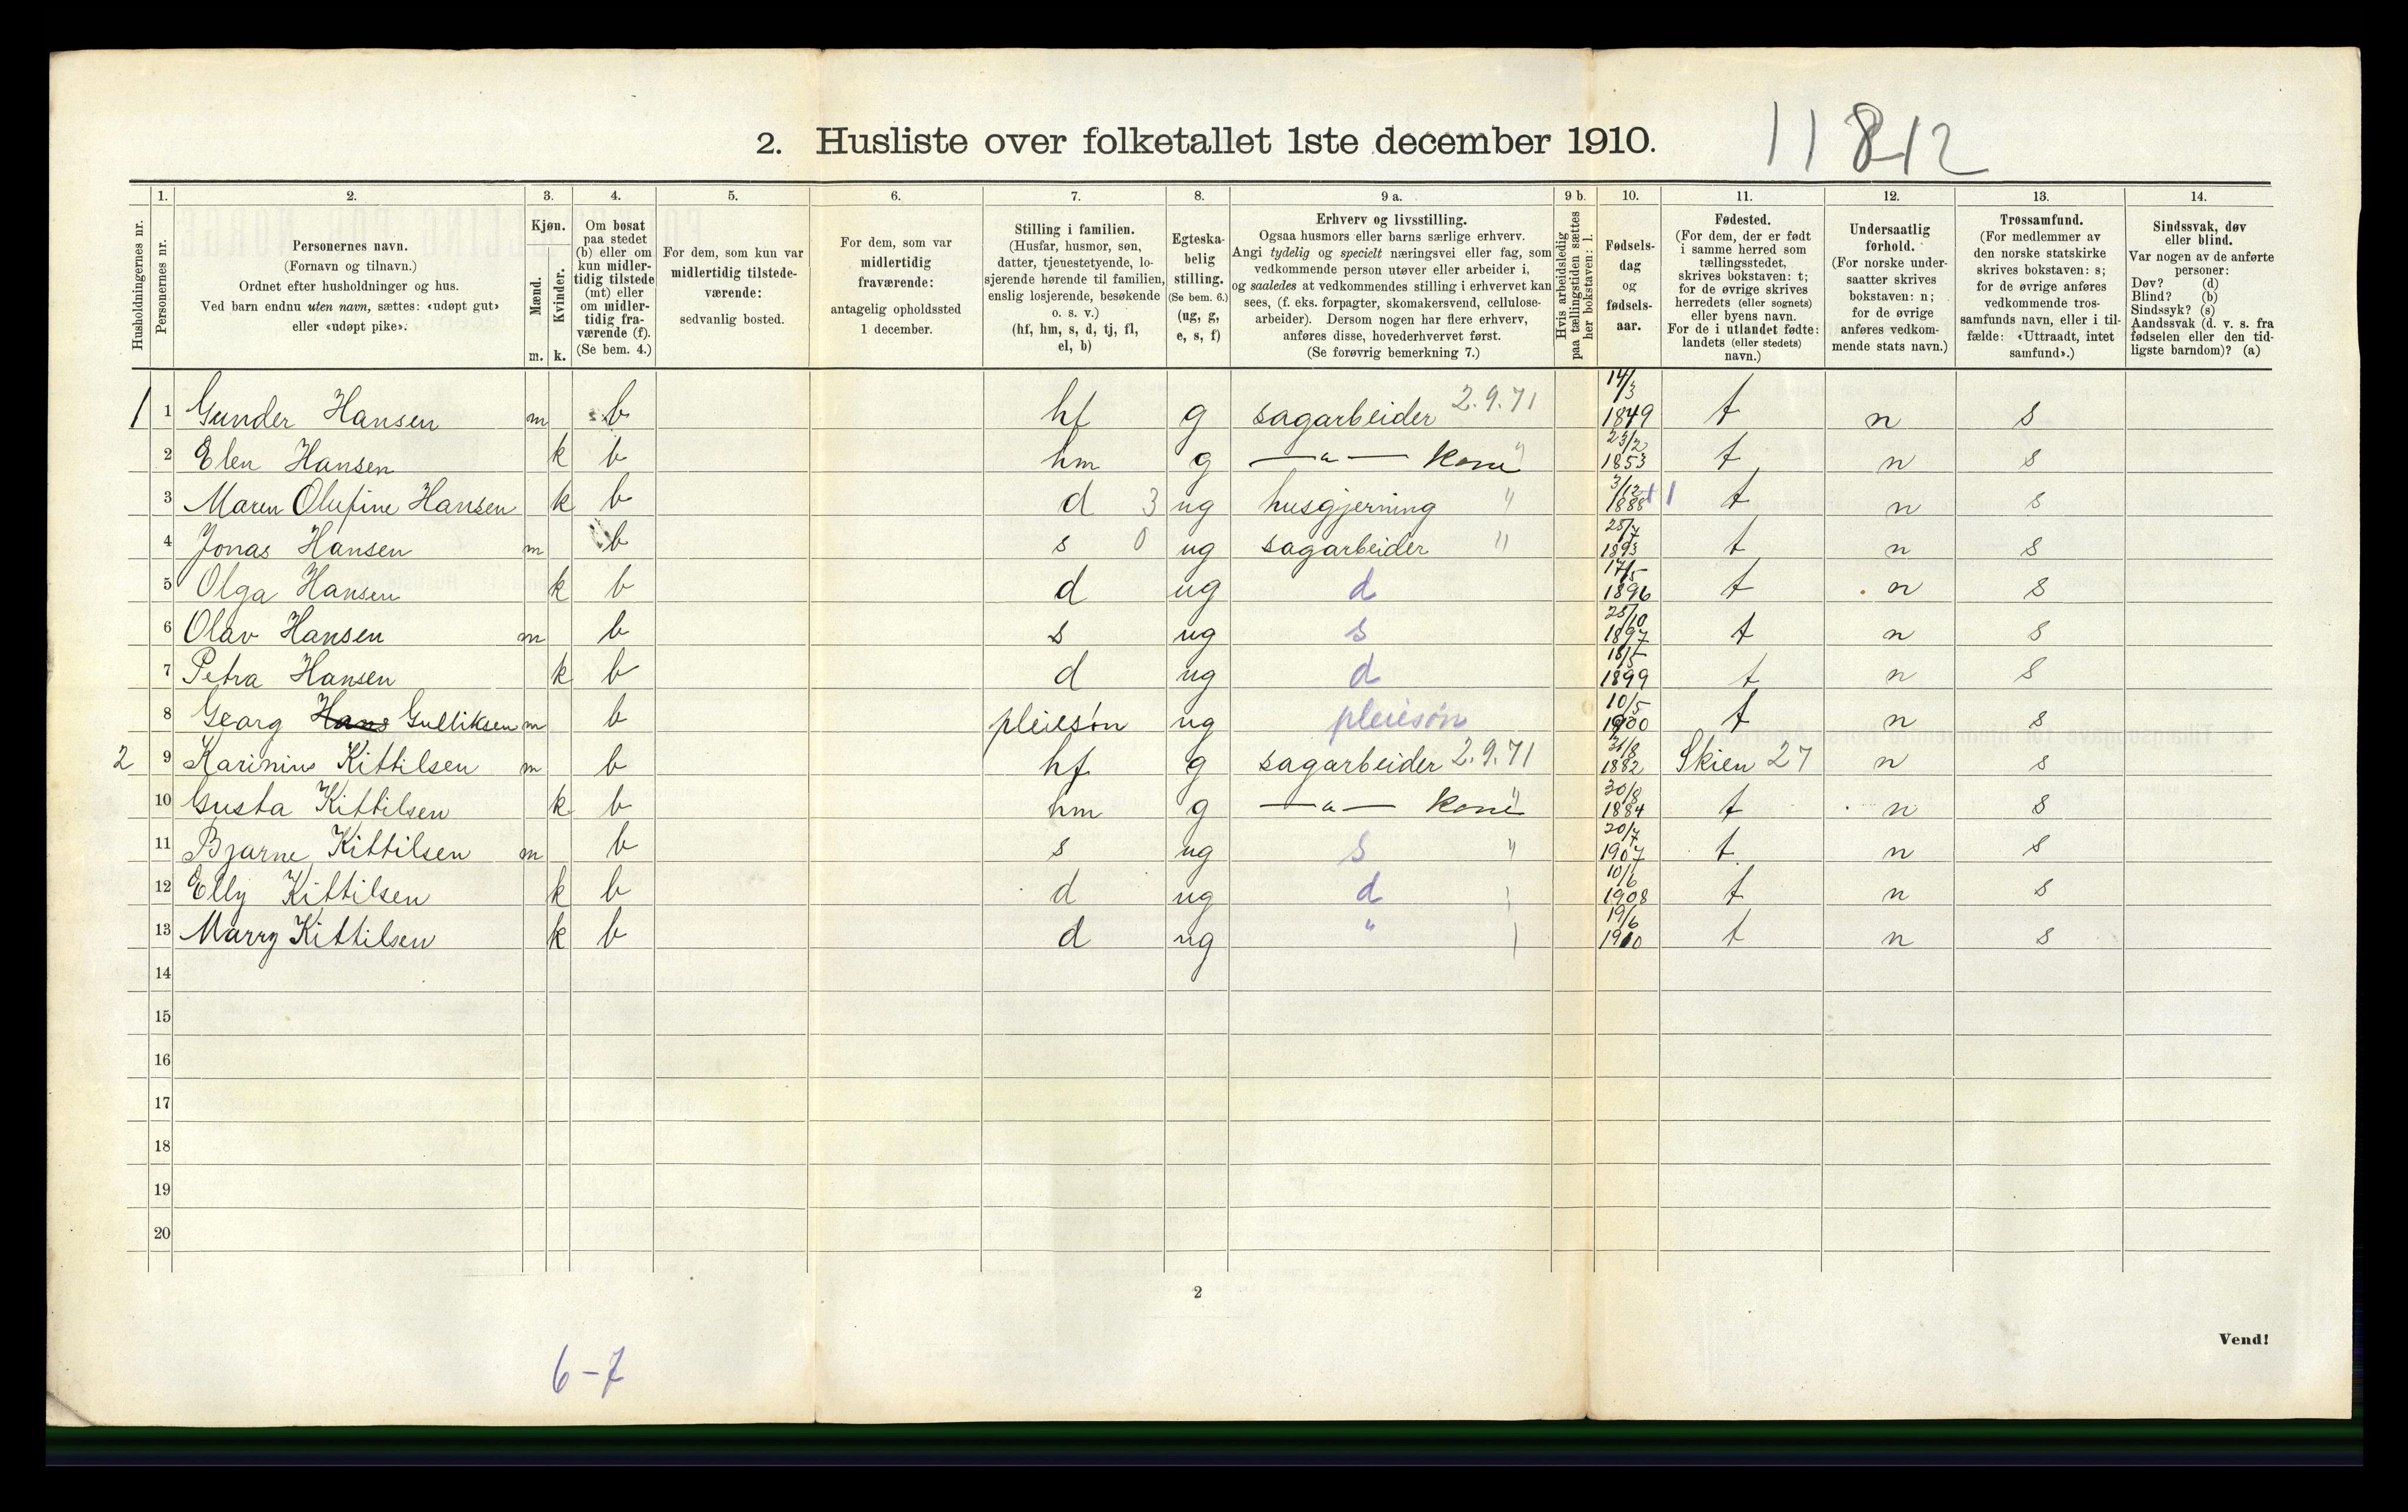 2. Husliste over folketallet 1ste december 1910.
11812
1. 2. 3. 4. 5. 6. 7. 8. 9 a. 9 b. 10. 11. 12. 13. 14.
Husholdningernes nr.
Personernes nr.
Personernes navn.
(Fornavn og tilnavn.)
Ordnet efter husholdninger og hus.
Ved barn endnu uten navn, sættes: «udøpt gut»
eller «udøpt pike».
Kjøn.
Mænd.
Kvinder.
m. k.
Om bosat
paa stedet
(b) eller om
kun midler-
tidig tilstede
(mt) eller
om midler-
tidig fra-
værende (f).
(Se bem. 4.)
For dem, som kun var
midlertidig tilstede-
værende:
sedvanlig bosted.
For dem, som var
midlertidig
fraværende:
antagelig opholdssted
1 december.
Stilling i familien.
(Husfar, husmor, søn,
datter, tjenestetyende, lo-
sjerende hørende til familien,
enslig losjerende, besøkende
o. s. v.)
(hf, hm, s, d, tj, fl,
el, b)
Egteska-
belig
stilling.
(Se bem. 6.)
(ug, g,
e, s, f)
Erhverv og livsstilling.
Ogsaa husmors eller barns særlige erhverv.
Angi tydelig og specielt næringsvei eller fag, som
vedkommende person utøver eller arbeider i,
og saaledes at vedkommendes stilling i erhvervet kan
sees, (f. eks. forpagter, skomakersvend, cellulose-
arbeider). Dersom nogen har flere erhverv,
anføres disse, hovederhvervet først.
(Se forøvrig bemerkning 7.)
Hvis arbeidsledig
paa tællingstiden sættes
her bokstaven: l.
Fødsels-
dag
og
fødsels-
aar.
Fødested.
(For dem, der er født
i samme herred som
tællingsstedet,
skrives bokstaven: t;
for de øvrige skrives
herredets (eller sognets)
eller byens navn.
For de i utlandet fødte:
landets (eller stedets)
navn.)
Undersaatlig
forhold.
(For norske under-
saatter skrives
bokstaven: n;
for de øvrige
anføres vedkom-
mende stats navn.)
Trossamfund.
(For medlemmer av
den norske statskirke
skrives bokstaven: s;
for de øvrige anføres
vedkommende tros-
samfunds navn, eller i til-
fælde: «Uttraadt, intet
samfund».)
Sindssvak, døv
eller blind.
Var nogen av de anførte
personer:
Døv? (d)
Blind? (b)
Sindssyk? (s)
Aandssvak (d. v. s. fra
fødselen eller den tid-
ligste barndom)? (a)
1 1 Gunder Hansen m b hf g sagarbeider 2.9.71 14/3 1849 t n s
2 Elen Hansen k b hm g —"— kone " 23/2 1853 t n s
3 Maren Olufine Hansen k b d 3 ug husgjerning " 3/12 1888 1 t n s
4 Jonas Hansen m b s 0 ug sagarbeider " 25/7 1893 t n s
5 Olga Hansen k b d ug d 17/5 1896 t n s
6 Olav Hansen m b s ug s 25/10 1897 t n s
7 Petra Hansen k b d ug d 18/5 1899 t n s
8 Georg Hans Gulliksen m b pleiesøn ug pleiesøn 10/5 1900 t n s
2 9 Karinius Kittilsen m b hf g sagarbeider 2.9.71 31/8 1882 Skien 27 n s
10 Gusta Kittilsen k b hm g —"— kone " 30/8 1884 t n s
11 Bjarne Kittilsen m b s ug s " 20/7 1907 t n s
12 Elly Kittilsen k b d ug d 10/6 1908 t n s
13 Marry Kittilsen k b d ug " 19/6 1910 t n s
14
15
16
17
18
19
20
2
Vend!
6-7